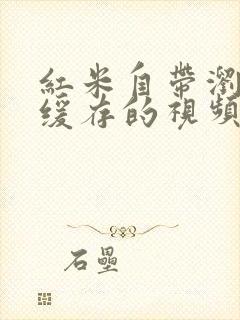 紅米自帶瀏
緩存的視頻
石壘